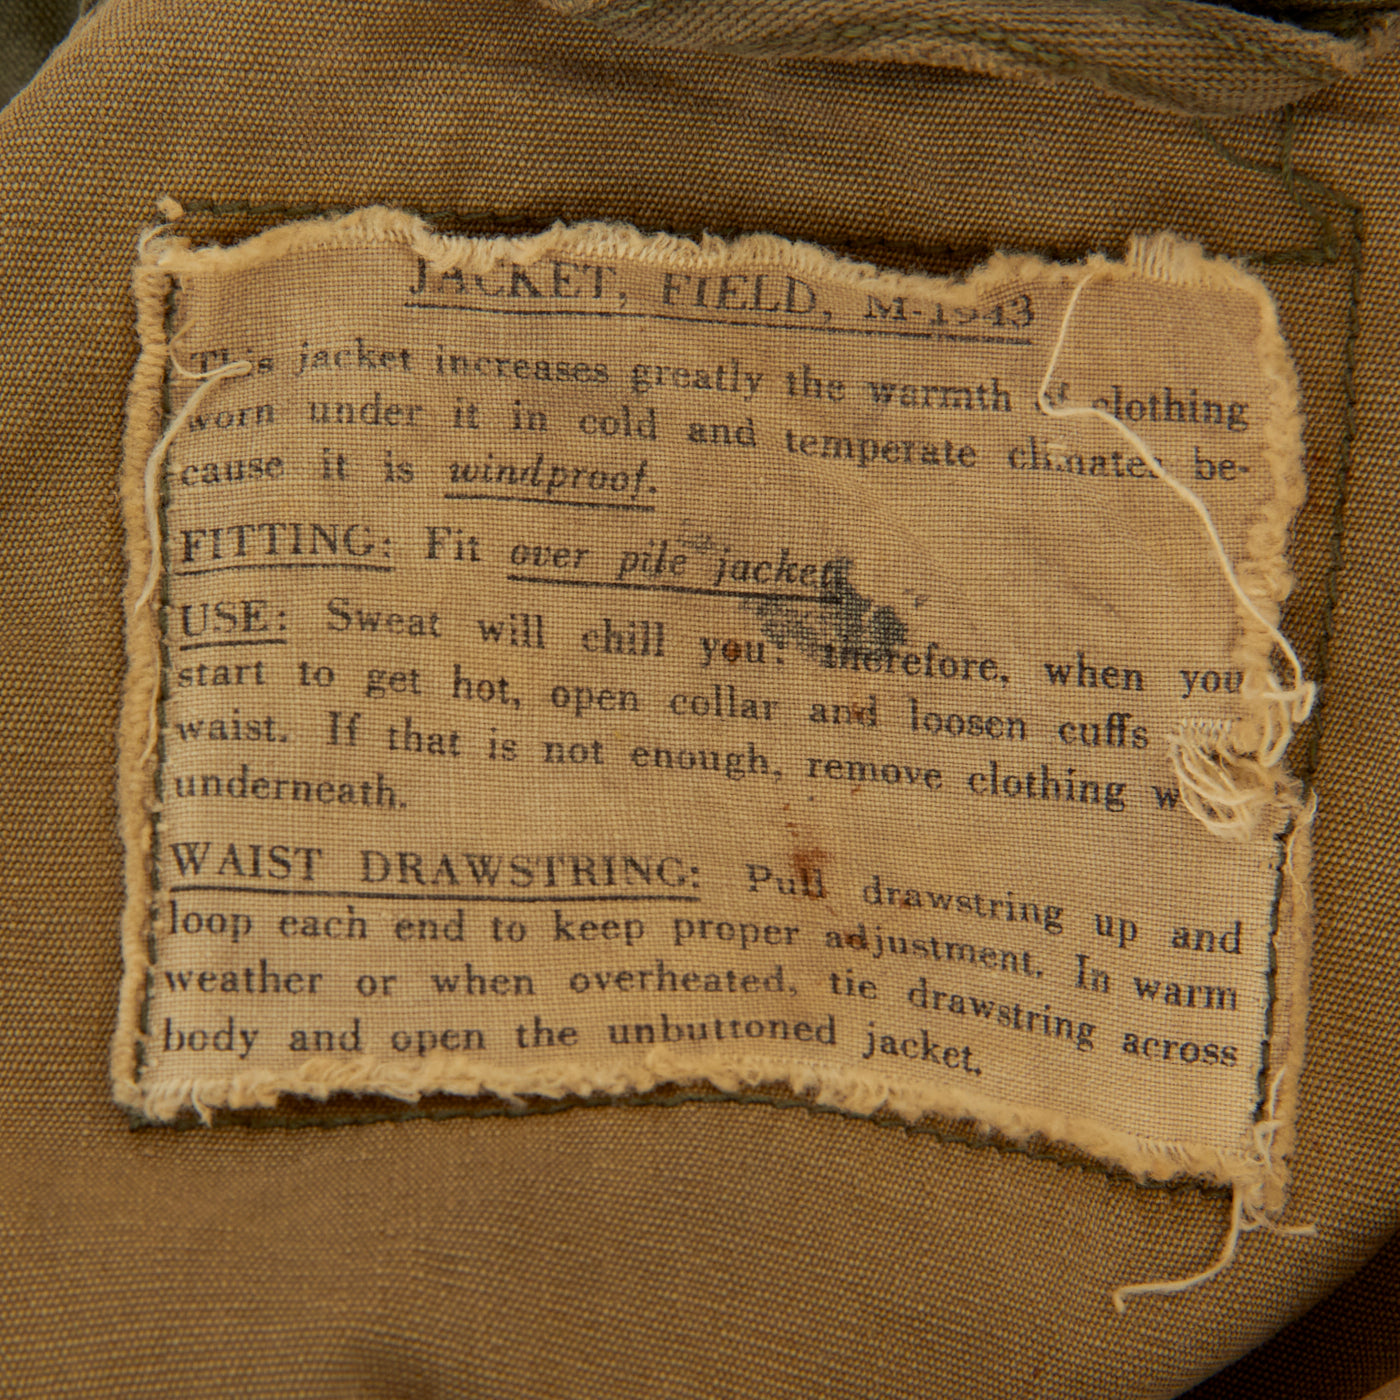 JACKET, FIELD, M-1943
This jacket increases greatly the warmth of clothing
worn under it in cold and temperate climates be-
cause it is windproof.
FITTING: Fit over pile jacket
USE: Sweat will chill you: therefore, when you
start to get hot, open collar and loosen cuffs
waist. If that is not enough, remove clothing
underneath.
WAIST DRAWSTRING: Pull drawstring up and
loop each end to keep proper adjustment. In warm
weather or when overheated, tie drawstring across
body and open the unbuttoned jacket.